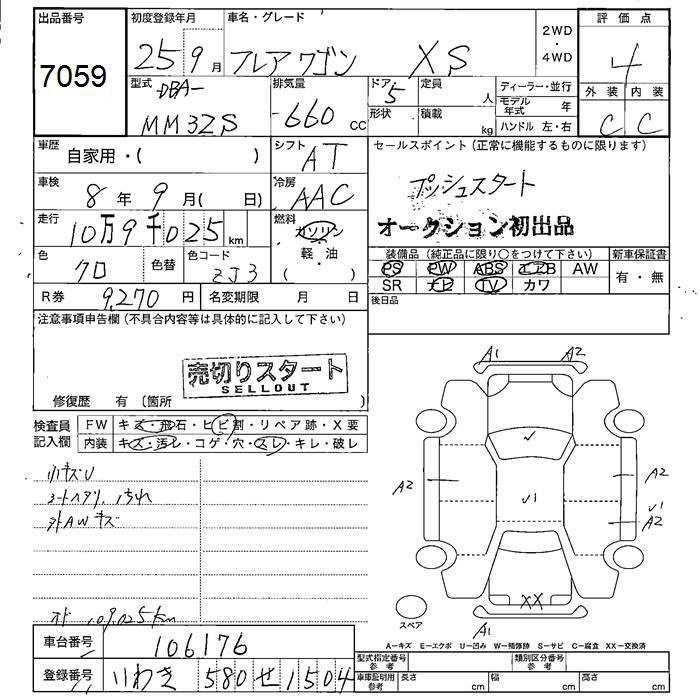 出品番号
7059
初度登録年月
25 9 月
車名・グレード
フレアワゴン XS
2WD
・
4WD
評価点
4
外装 内装
C C
型式
DBA-
MM32S
排気量
660 cc
ドア
5
形状
定員
人
積載
kg
ディーラー・並行
モデル年式 年
ハンドル 左・右
車歴
自家用・( )
シフト
AT
車検
8 年 9 月( 日)
冷房
AAC
走行
10万9千025 km
燃料
ガソリン
軽・油
色
クロ
色替
色コード
ZJ3
R券 9,270 円
名変期限 月 日
セールスポイント(正常に機能するものに限ります)
プッシュスタート
オークション初出品
装備品(純正品に限り○をつけて下さい)
PS PW ABS エアB AW
SR ナビ TV カワ
新車保証書
有・無
後日品
注意事項申告欄(不具合内容等は具体的に記入して下さい)
売切りスタート
SELLOUT
修復歴 有(箇所 )
検査員
記入欄
FW キズ・飛石・ヒビ割・リペア跡・X要
内装 キズ・汚レ・コゲ・穴・スレ・キレ・破レ
小キズU
シートヘタリ、汚れ
外AWキズ
オド 109,025km
A1 A2
A2
A2
A2
XX
A1
スペア
A-キズ E-エクボ U-凹み W-補修跡 S-サビ C-腐食 XX-交換済
車台番号 106176
登録番号 いわき 580 せ 1504
型式指定番号
参考
類別区分番号
参考
車庫証明用
参考
長さ cm 幅 cm 高さ cm